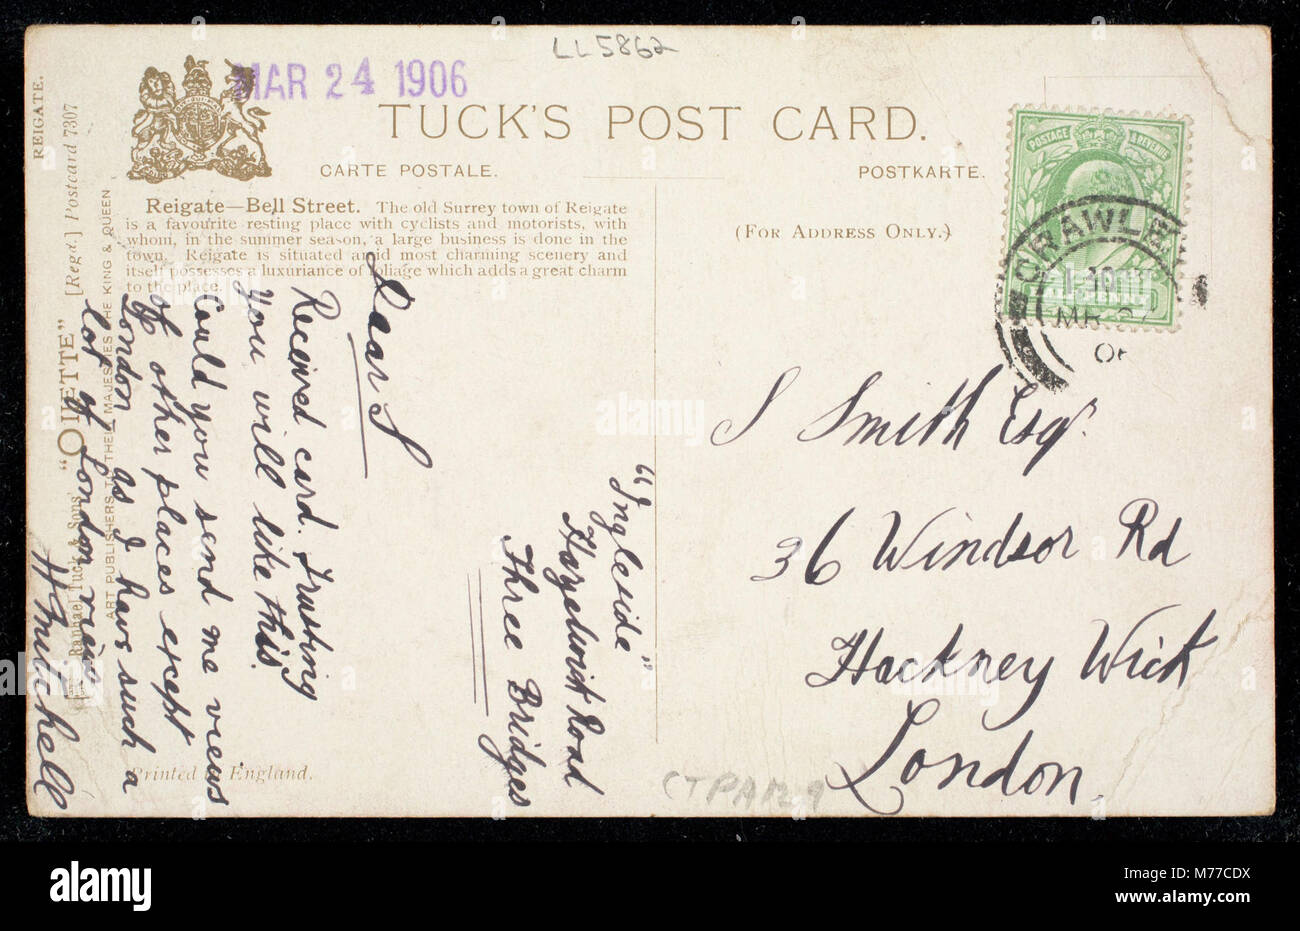 LL5862
MAR 24 1906
TUCK'S POST CARD.
CARTE POSTALE.
POSTKARTE.
(FOR ADDRESS ONLY.)
Reigate—Bell Street. The old Surrey town of Reigate
is a favourite resting place with cyclists and motorists, with
whom, in the summer season, a large business is done in the
town. Reigate is situated amid most charming scenery and
itself possesses a luxuriance of foliage which adds a great charm
to the place.
REIGATE.
[Regd.] Postcard 7307
"OILETTE"
Raphael Tuck & Sons
ART PUBLISHERS TO THEIR MAJESTIES THE KING & QUEEN
Printed in England.
"Ingleside"
Hazelwick Road
Three Bridges
Dear S
Received card. Trusting
you will like this.
Could you send me views
of other places except
London as I have such a
lot of London views
H Mitchell
POSTAGE & REVENUE
PENNY
CRAWLEY
MR 27
06
S Smith Esqr
36 Windsor Rd
Hackney Wick
London.
CTPA1209
alamy
alamy
Image ID: M77CDX
www.alamy.com